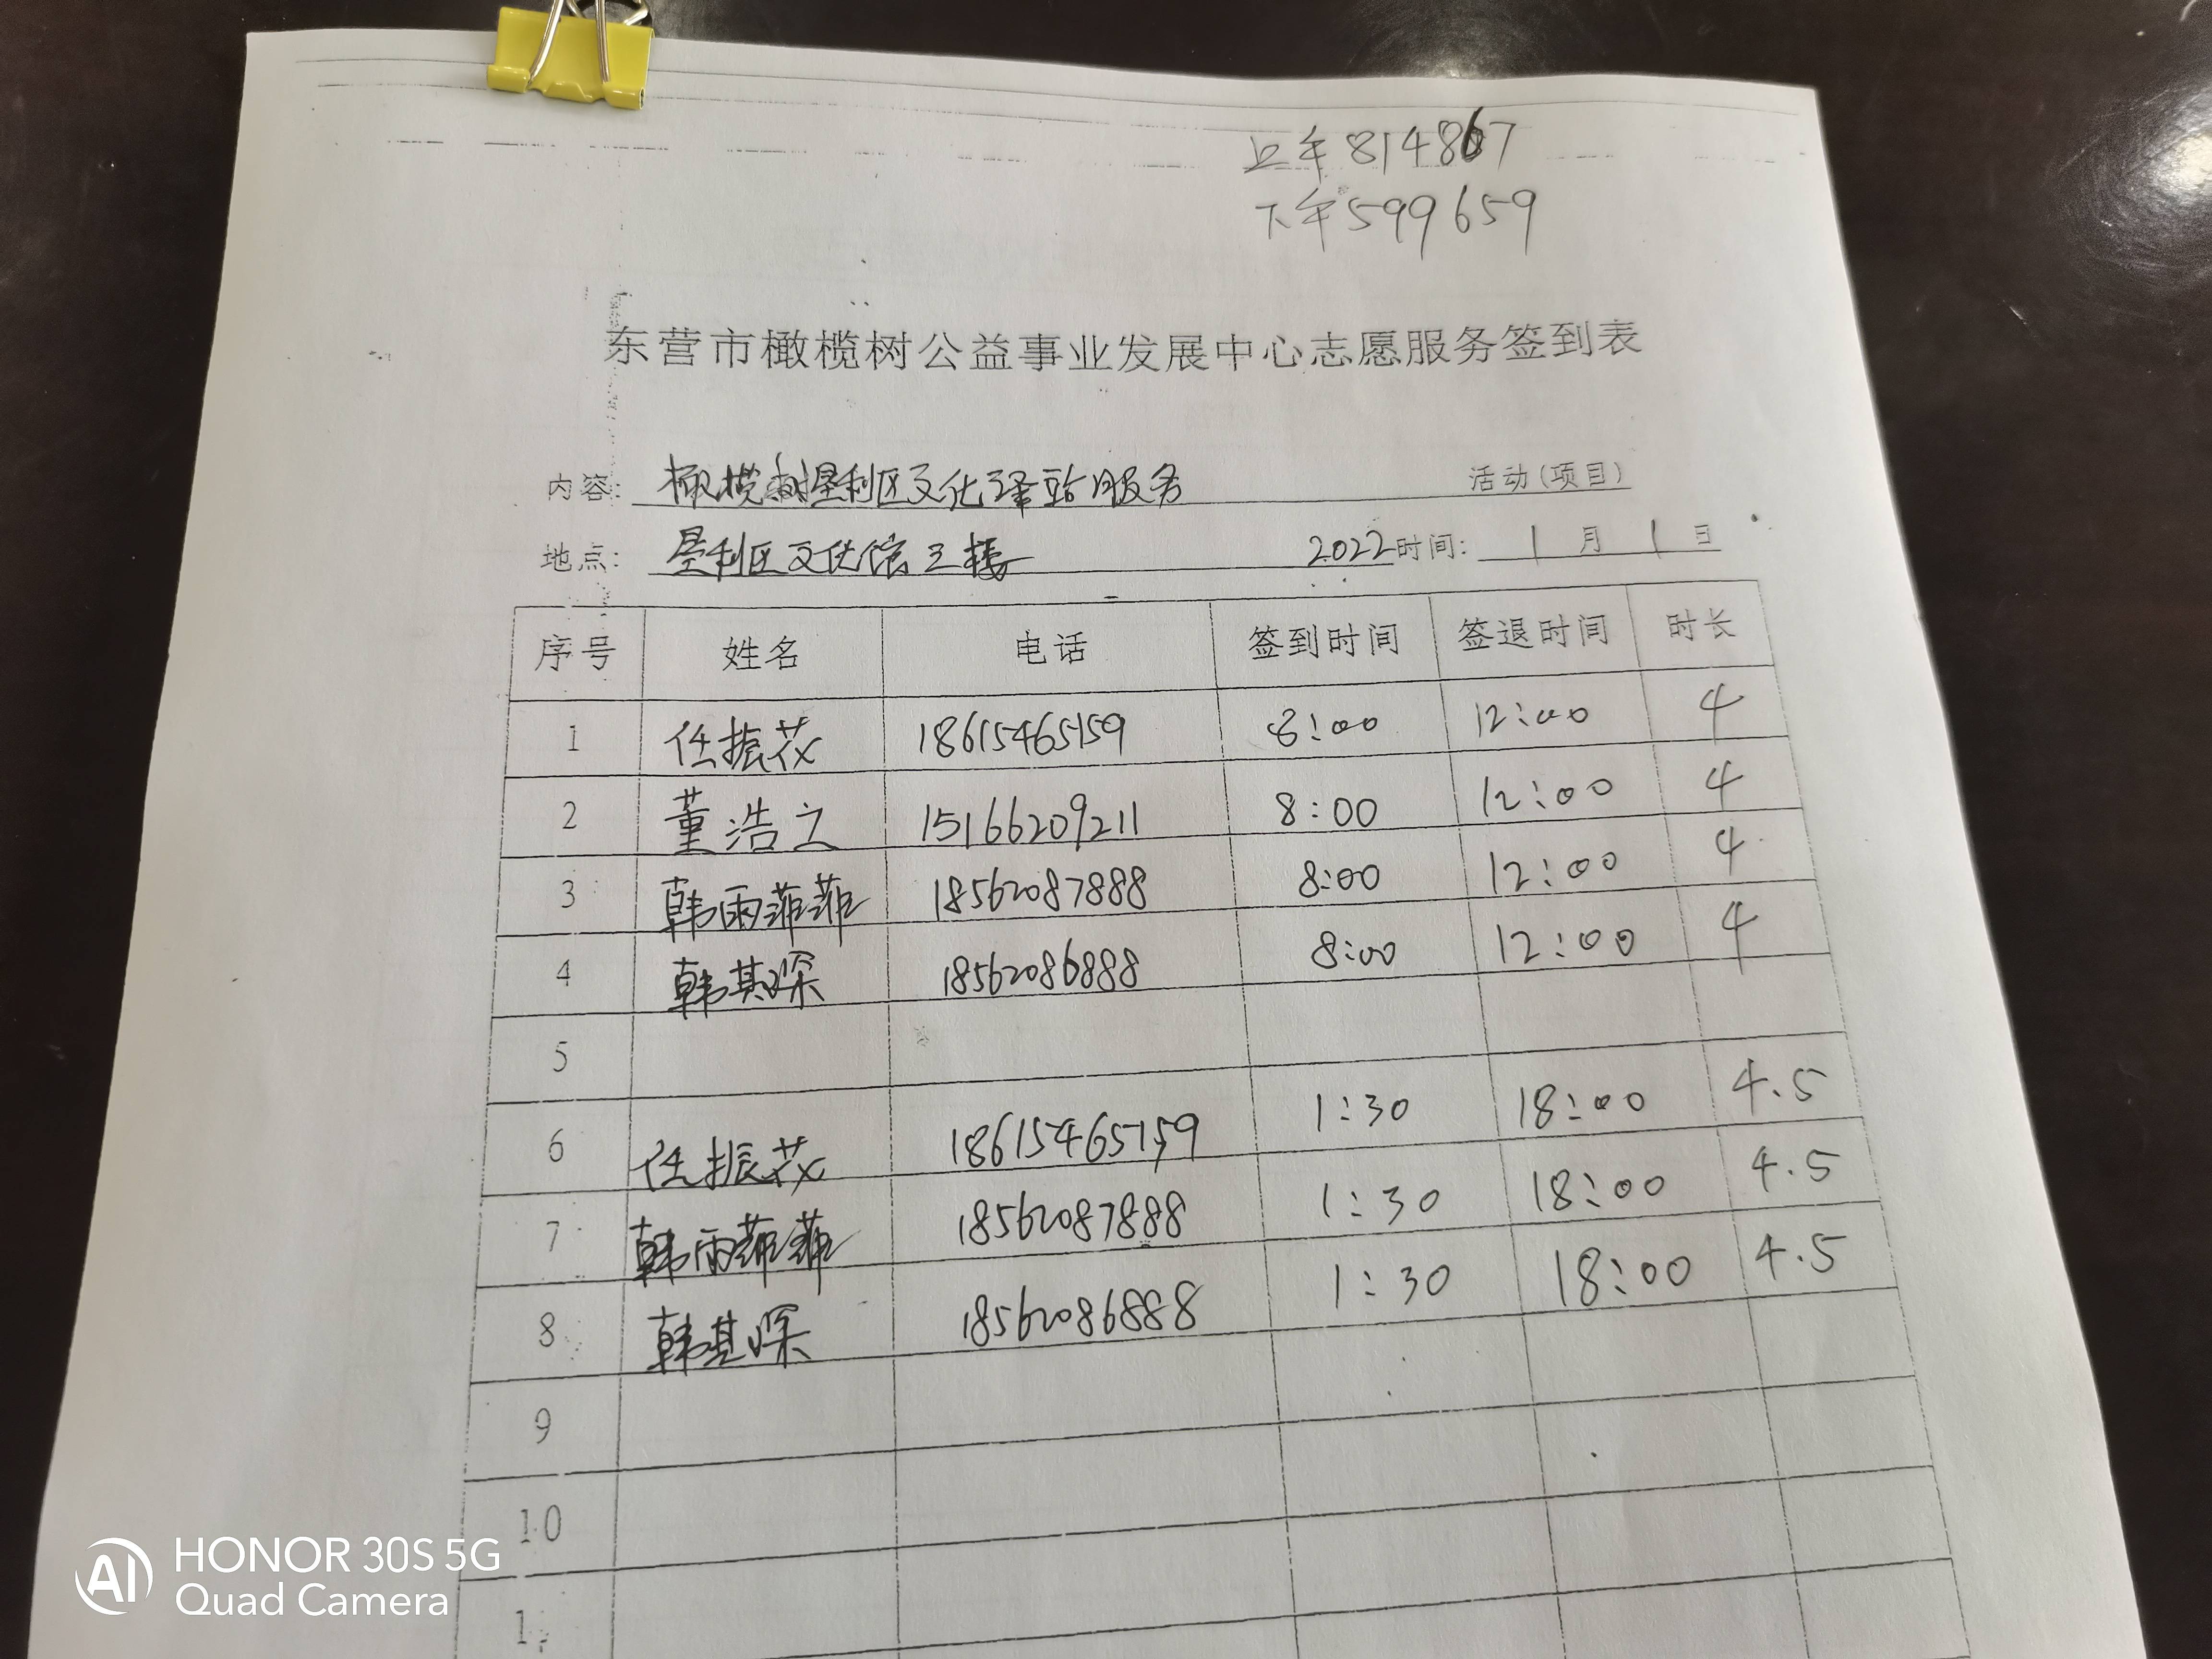 上午814867
下午599659
东营市橄榄树公益事业发展中心志愿服务签到表
内容: 橄榄树垦利区文化驿站服务 活动(项目)
地点: 垦利区文化馆三楼 2022时间: 1月1日
序号 姓名 电话 签到时间 签退时间 时长
1 任振花 18615465159 8:00 12:00 4
2 董浩之 15166209211 8:00 12:00 4
3 韩雨菲菲 18562087888 8:00 12:00 4
4 韩其琛 18562086888 8:00 12:00 4
5
6 任振花 18615465159 1:30 18:00 4.5
7 韩雨菲菲 18562087888 1:30 18:00 4.5
8 韩其琛 18562086888 1:30 18:00 4.5
9
10
AI HONOR 30S 5G
Quad Camera